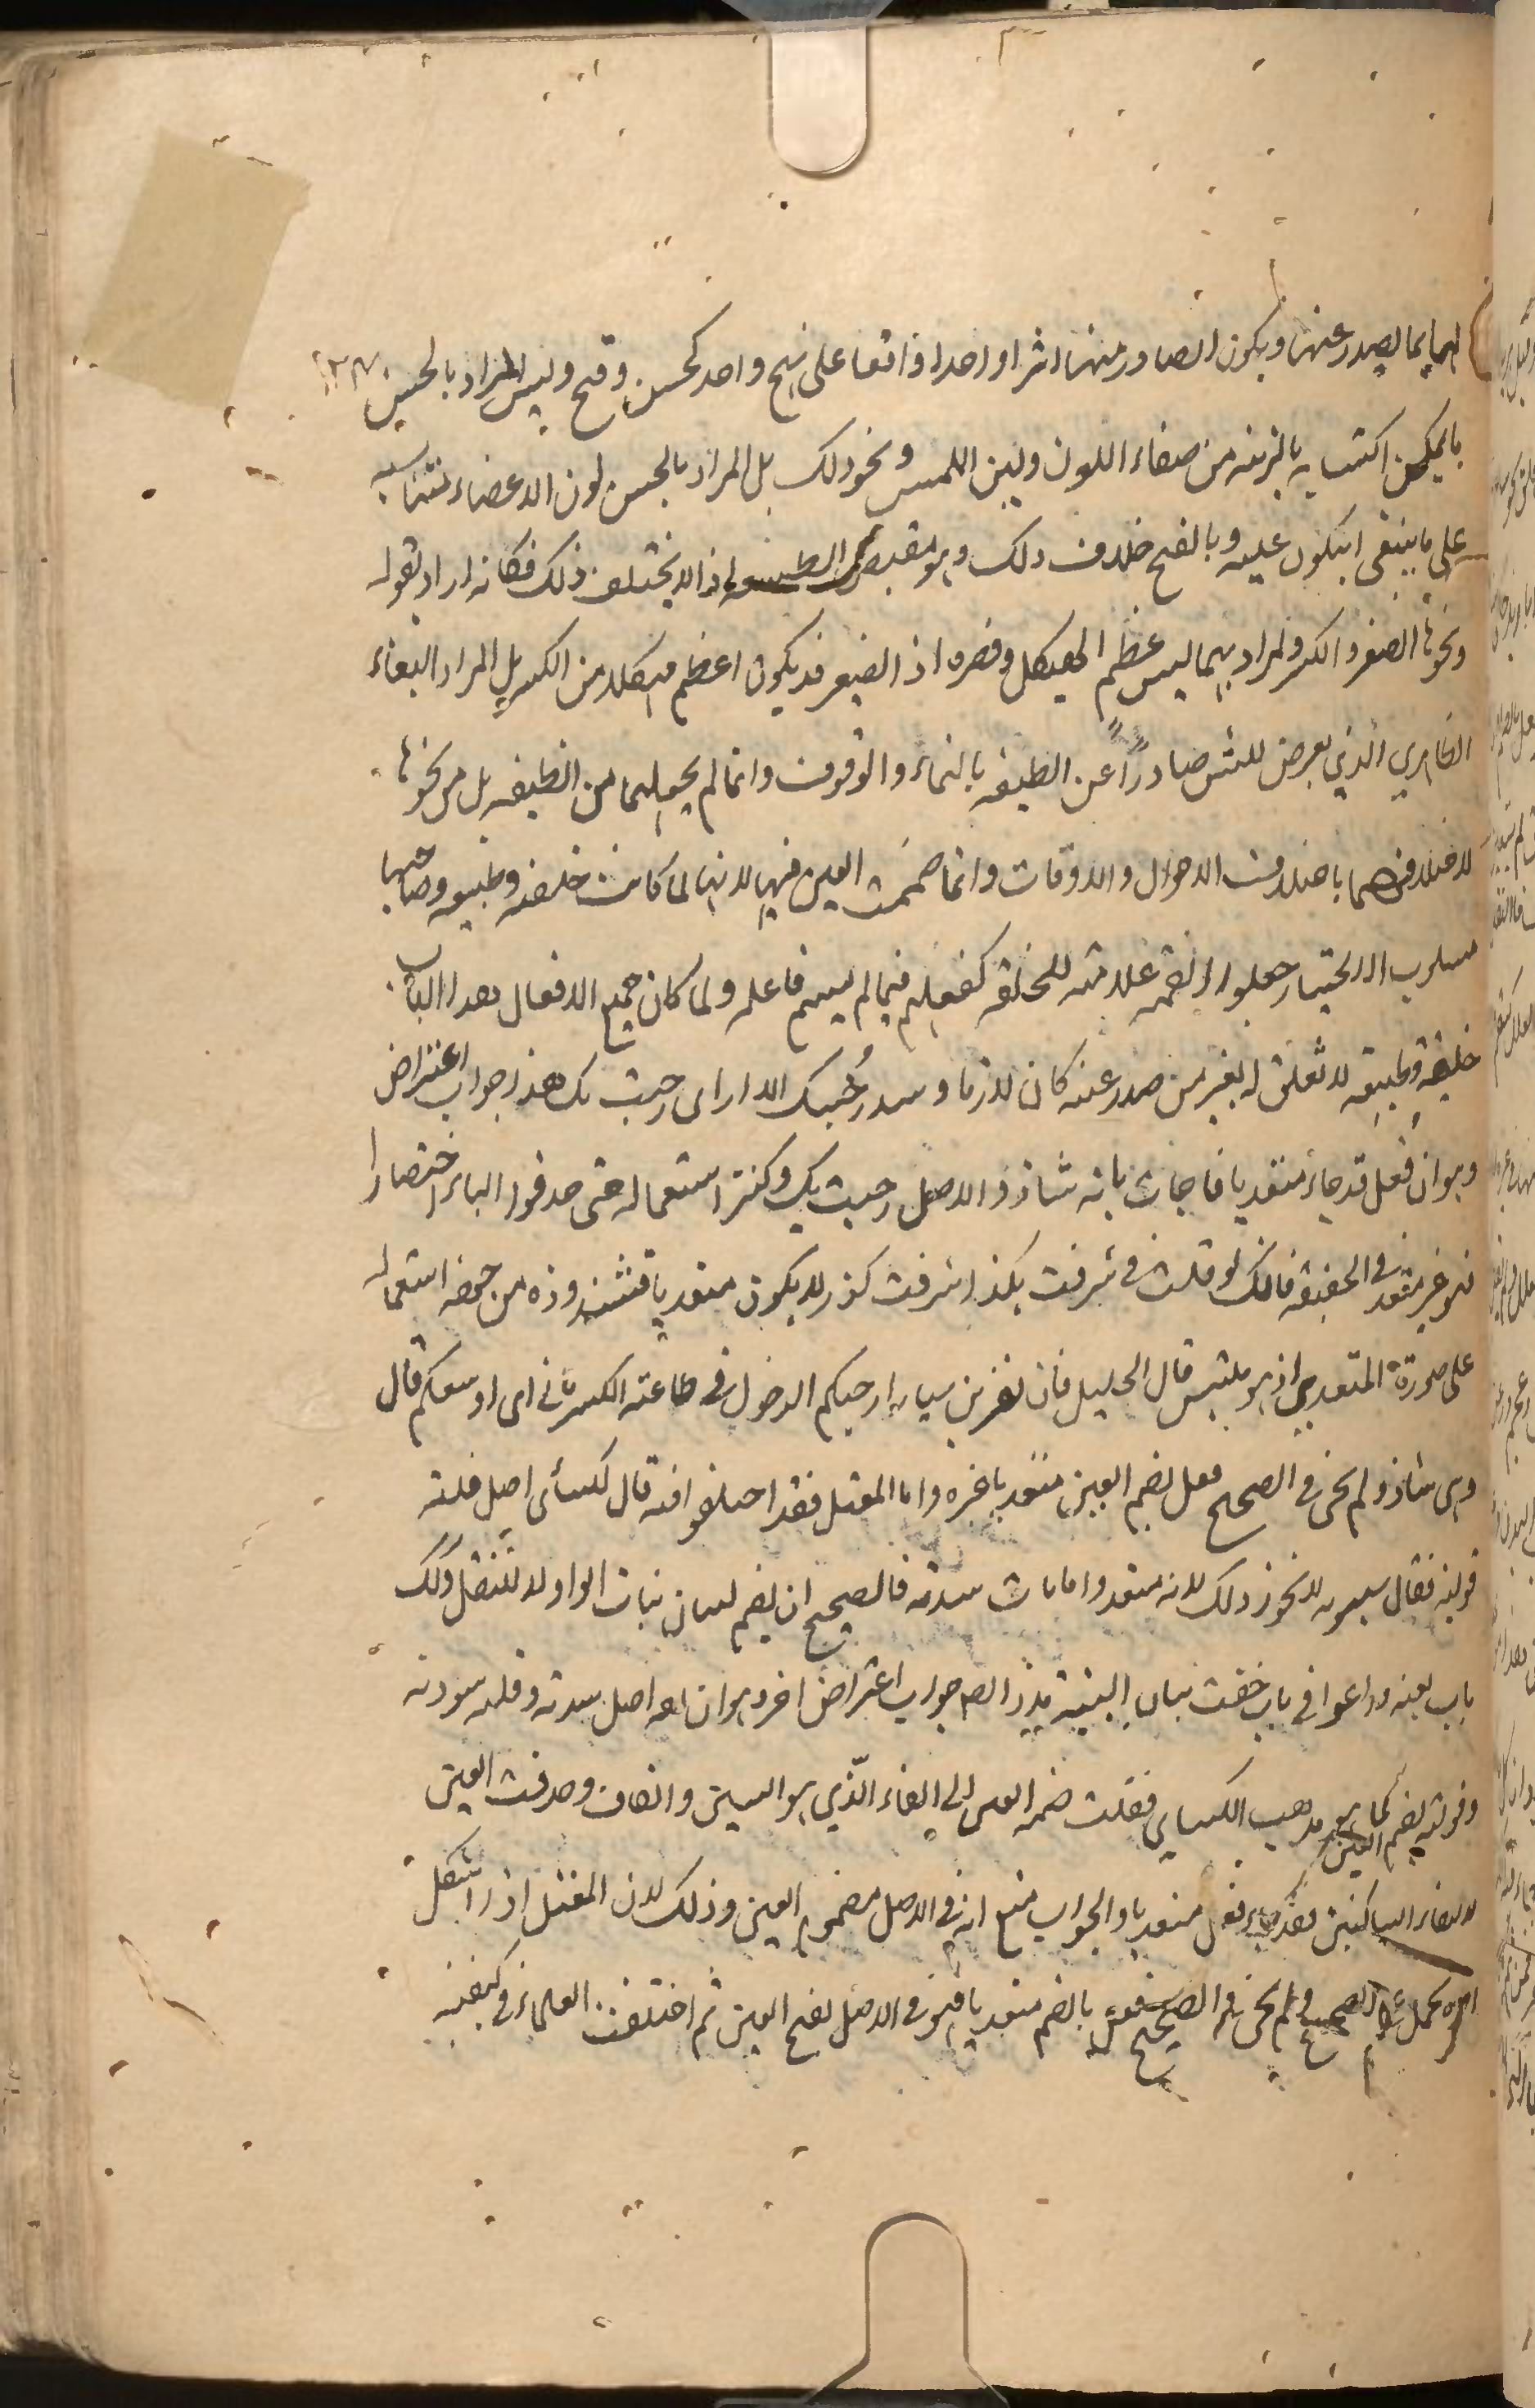 الهما يما لصدر عنها ويكون الصادر منها اثرا واحدا واقعا على نهج واحد كحسن وقبح وليس المراد بالحسن
ما يمكن اكتسابه بالزينة من صفاء اللون ولين اللمس ونحو ذلك بل المراد بالحسن لون الاعضاء متناسبة
على ما ينبغى ان يكون عليه وبالقبح خلاف ذلك وهو مقتضى الطبيعة اذ لا يختلف ذلك فكانه اراد بقوله
ونحوها الصغر والكبر والمراد بهما ليس عظم الهيكل وقصره اذ الصغير قد يكون اعظم هيكلا من الكبير بل المراد
الظاهري الذي يعرض للشئ صادرا عن الطبيعة بالنماء والوقوف وانما لم يجعلهما من الطبيعة بل من نحوها
لاختلافهما باختلاف الاحوال والاوقات وانما ضمت العين فيها لانها لما كانت خلقة وطبيعة وصاحبها
مسلوب الاختيار جعلوا الضمة علامة للخلقة كفعلهم فيما لم يسم فاعله ولما كان جميع الافعال بهذا الباب
خليقة وطبيعة لا تعلق له بغير من صدر عنه كان لازما وسد رحبتك الدار اى رحبت بك هذا جواب اعتراض
وهو ان فعل قد جاء متعديا فاجاب بانه شاذ والاصل رحبت بك وكثر استعماله حتى حذفوا الباء اختصارا
فهو غير متعد فى الحقيقة فانك لو قلت فى شرفت بكذا شرفت كذا لا يكون متعديا فشذوذه من جهة استعماله
على صورة المتعدى اذ هو ملتبس قال الخليل قال نصر بن سيار ارحبكم الدخول فى طاعة الكرماني اى اوسعكم قال
وهى شاذة ولم يجئ فى الصحيح فعل بضم العين متعديا غيره واما المعتل فقد اختلفوا فيه قال الكسائى اصل قلته
قولته فقال سيبويه لا يجوز ذلك لانه متعد واما باب سدته فالصحيح ان الضم لبيان بنات الواو لا للنقل وكذلك
باب بعته وراعوا فى باب خفت بيان البنية هذا ايضا جواب اعتراض اخر وهو ان يقال اصل سدته وقلته سودته
وقولته بضم العين كما هو مذهب الكسائى فنقلت ضمة العين الى الفاء الذي هو السين والقاف وحذفت العين
لالتقاء الساكنين فقد جاء فعل متعديا والجواب منع انه فى الاصل مضموم العين وذلك لان المعتل اذا اشكل
امره يحمل على الصحيح ولم يجئ فى الصحيح فعل بالضم متعديا فهو فى الاصل بفتح العين ثم اختلفت العلماء فى كيفية